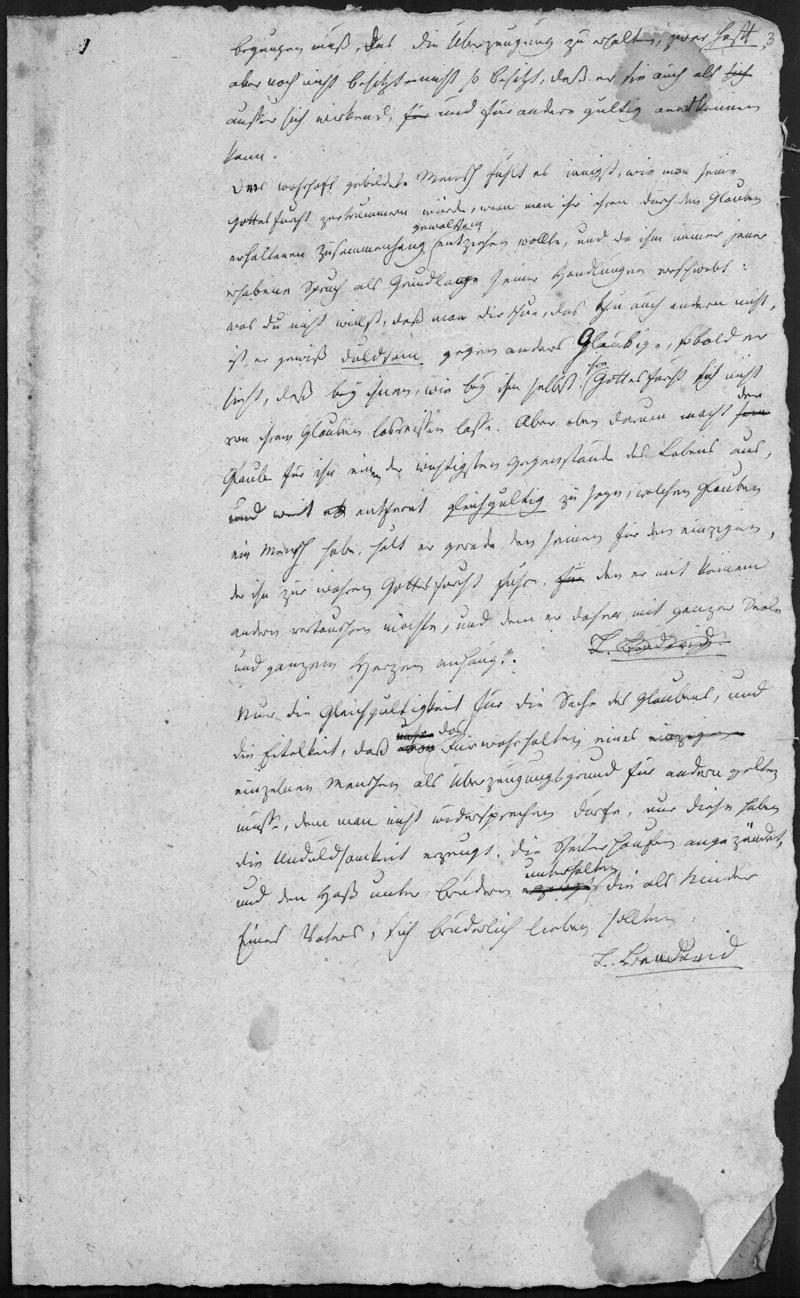 3
begnügen muß, das die Überzeugung zu erhalten, zwar hofft,
aber noch nicht besitzt, nicht so besitzt, daß er sie auch als sich
außer sich wirkend, für und für andere gültig anerkennen
kann.
Der wahrhaft gebildete Mensch fühlt es innigst, wie man seine
Gottesfurcht zertrümmern würde, wenn man ihr ihren durch den Glauben
gewaltsam
erhaltenen Zusammenhang entziehen wollte, und da ihm immer jener
erhabene Spruch als Grundlage seiner Handlungen vorschwebt:
was du nicht willst, daß man dir thue, das thu auch andern nicht,
ist er gewiß duldsam gegen anders Gläubige, sobald er
sieht, daß bey ihnen, wie bey ihm selbst ihre Gottesfurcht sich nicht
von ihrem Glauben losreissen lasse. Aber eben darum macht der
Glaube für ihn einen der wichtigsten Gegenstände des Lebens aus,
und weit entfernt gleichgültig zu seyn, welchen Glauben
ein Mensch habe, hält er gerade den seinen für den einzigen,
der ihn zur wahren Gottesfurcht führe, für den er mit keinem
andern vertauschen möchte, und dem er daher mit ganzer Seele
und ganzem Herzen anhängt.
L. Bendavid
Nur die Gleichgültigkeit für die Sache des Glaubens, und
die Eitelkeit, daß das Fürwahrhalten eines einzigen
einzelnen Menschen als Überzeugungsgrund für andere gelten
müsse, dem man nicht widersprechen dürfe, nur diese haben
die Unduldsamkeit erzeugt, die Scheiterhaufen angezündet,
unterhalten
und den Haß unter Brüdern erzeugt, die als Kinder
Eines Vaters, sich brüderlich lieben sollten.
L. Bendavid